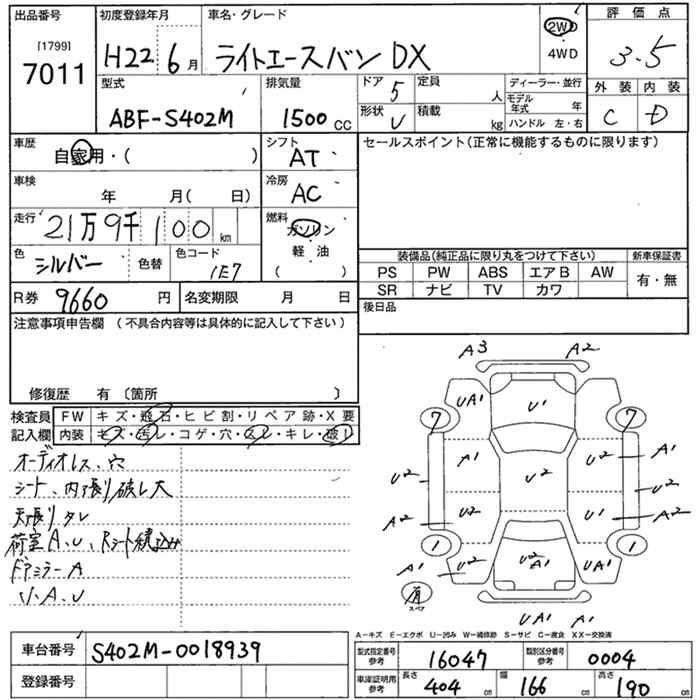 出品番号
[1799]
7011
初度登録年月
H22 6月
車名・グレード
ライトエースバン DX
2WD
4WD
評価点
3.5
外装 内装
C D
型式
ABF-S402M
排気量
1500 CC
ドア 5
形状 V
定員 人
積載 kg
ディーラー・並行
モデル年式 年
ハンドル 左・右
車歴
自家用・( )
シフト
AT
セールスポイント(正常に機能するものに限ります)
車検
年 月( 日)
冷房
AC
走行
21万9千100 km
燃料
ガソリン
軽油
( )
色
シルバー
色替
色コード
1E7
装備品(純正品に限り丸をつけて下さい)
新車保証書
PS PW ABS エアB AW
SR ナビ TV カワ
有・無
R券 9660 円
名変期限 月 日
後日品
注意事項申告欄 (不具合内容等は具体的に記入して下さい)
修復歴 有〔箇所 〕
検査員記入欄
FW キズ・飛石・ヒビ割・リペア跡・X要
内装 キズ・汚レ・コゲ・穴・スレ・キレ・破レ
オーディオレス、穴
シート、内張り破レ大
天張りタレ
荷室A、U、Rシート積込み
ドアミラーA
A3 A2
UA1 U1
7 7
A1 U2 A1
U2 U2 U2
A2 U2 U1 A2
1 1
A1 U2 U2 A1 UA1 A1
有 スペア
UA1 A1
A-キズ E-エクボ U-凹み W-補修跡 S-サビ C-腐食 XX-交換済
車台番号 S402M-0018939
登録番号
型式指定番号 参考 16047
類別区分番号 参考 0004
車庫証明用 参考
長さ 404 cm
幅 166 cm
高さ 190 cm